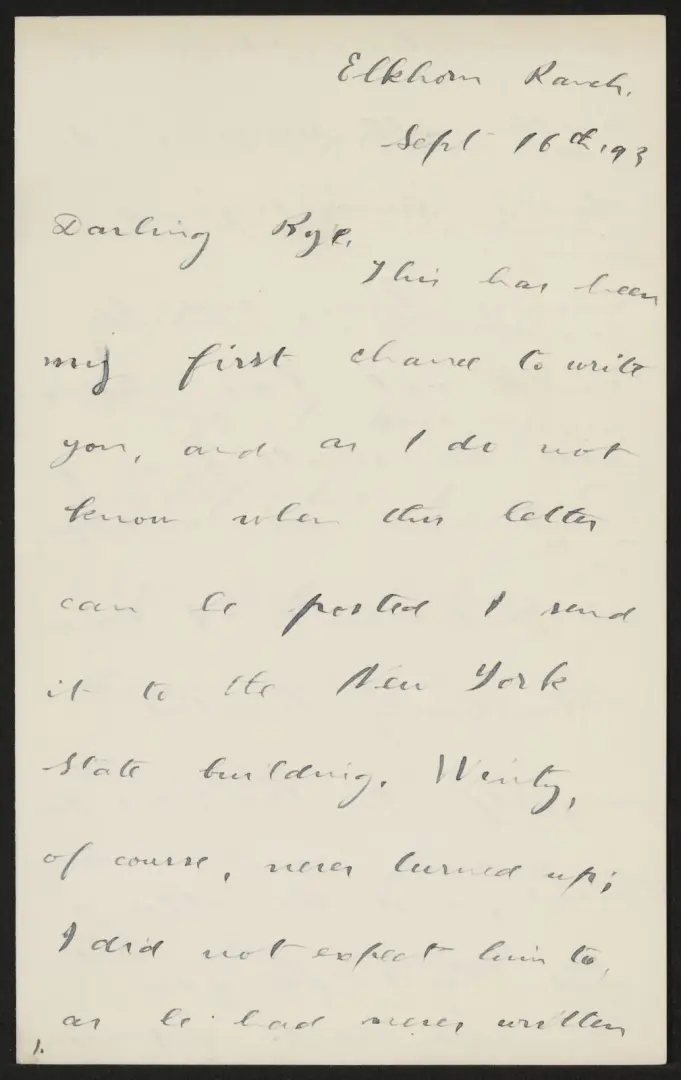 Elkhorn Ranch.
Sept 16th, 93
Darling Bye,
This has been
my first chance to write
you, and as I do not
know when this letter
can be posted I send
it to the New York
State building. Winty,
of course, never turned up;
I did not expect him to,
as he had never written
1.